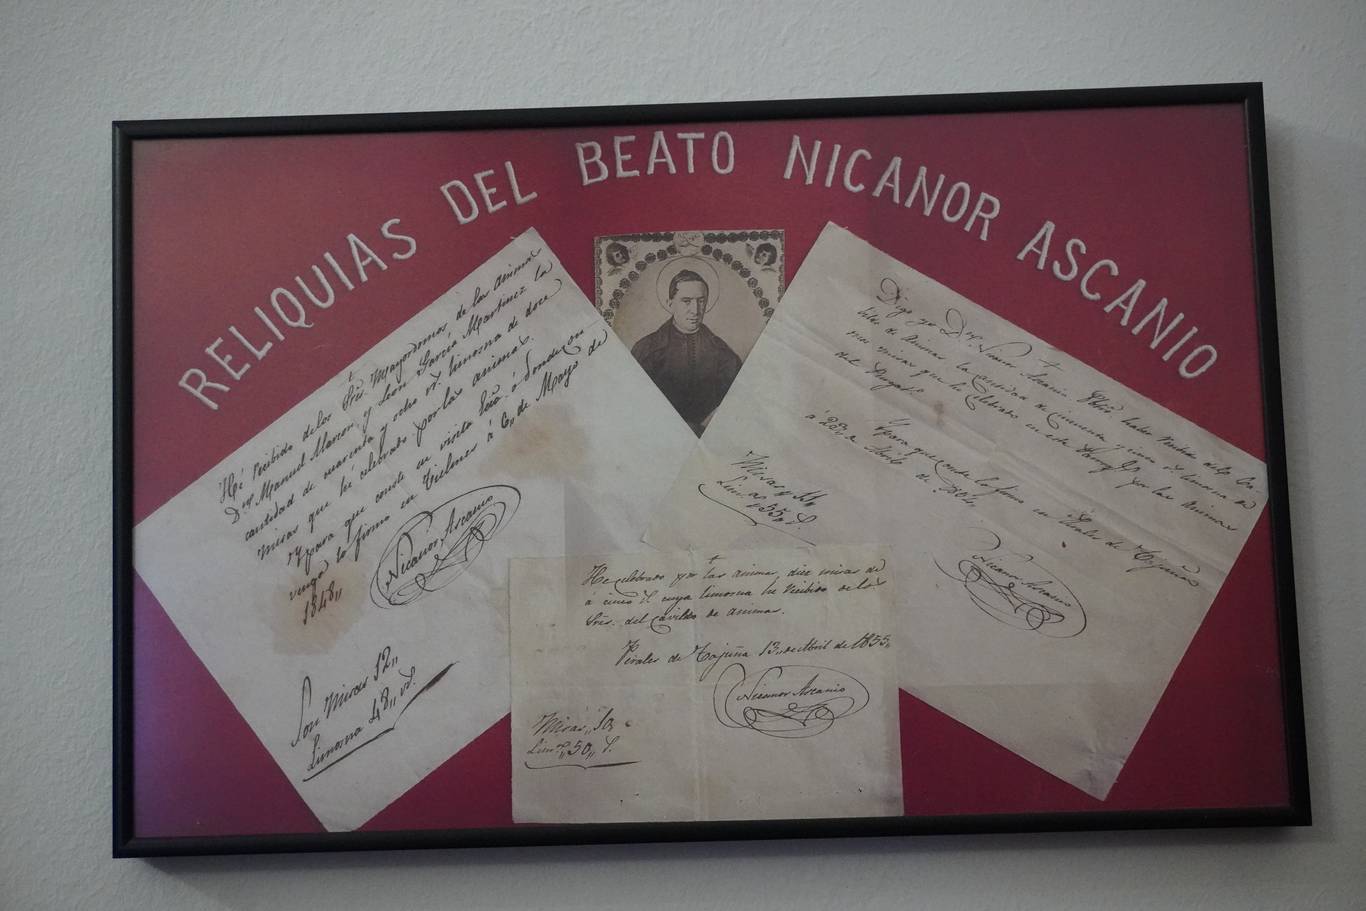 RELIQUIAS DEL BEATO NICANOR ASCANIO
He recibido de los Sres. Mayordomos, de las animas
Dn. Manuel Marcos y Leon Garcia Martinez la
cantidad de cuarenta y ocho rs. limosna de doce
misas que hé celebrado por las animas.
Y para que conste en visita Ecca. ó donde con
venga lo firmo en Tielmes á 6,, de Mayo de
1848,,
Nicanor Ascanio
Son Misas 12,,
Limosna 48,, rs.
He celebrado por las animas diez misas de
á cinco rs. cuya limosna he recibido de los
Sres. del Cavildo de animas.
Perales de Tajuña 13,, de Abril de 1855,,
Nicanor Ascanio
Misas,, 10,
Limna. ,,50,,
Digo yo Dn. Nicanor Ascanio Pbro. haber recibido del Ca-
bildo de Animas la cantidad de cincuenta y cinco rs. limosna de
misas que he celebrado en esta Parroqa. por las Animas
del Purgato.
Y para que conste lo firmo en Perales de Tajuña
á 23,, de Abril de
Nicanor Ascanio
Misas 11,,
Lima. 55,,